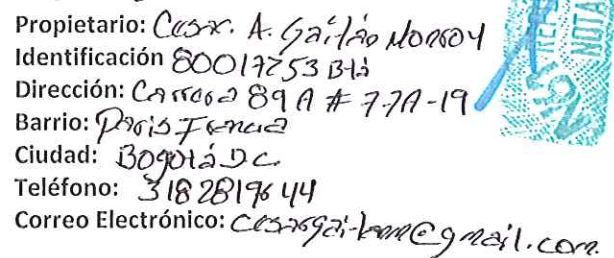 Propietario: Cesar. A. Gaitán Monroy
Identificación 80017253 Btá
Dirección: Carrera 89 A # 77A-19
Barrio: Paris Francia
Ciudad: Bogotá D.C.
Teléfono: 3182819644
Correo Electrónico: @gmail.com
NOTA